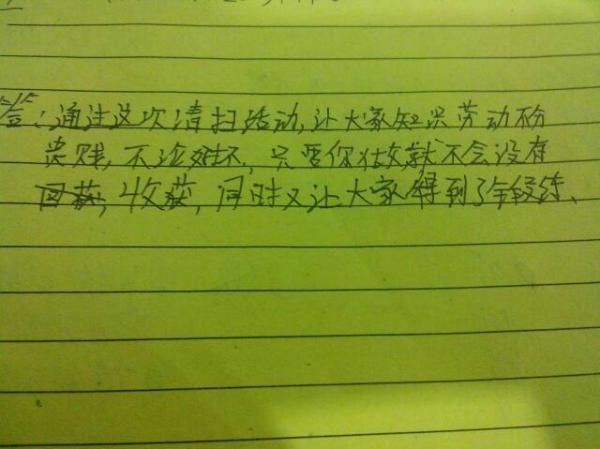 答：通过这次清扫活动，让大家知识劳动不分
贵贱，不论好坏，只要你做就不会没有
收获，同时又让大家得到了锻练、